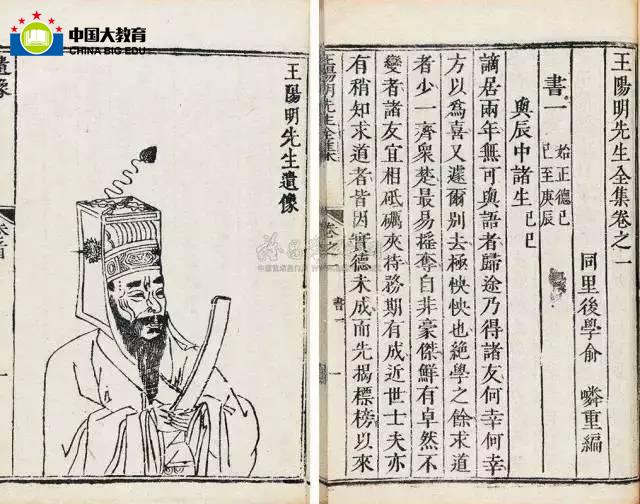 中国大教育
CHINA BIG EDU
王陽明先生遺像
王陽明先生全集卷之一
同里後學俞 嶙重編
書一
始正德己
巳至庚辰
與辰中諸生 己巳
謫居兩年無可與語者歸途乃得諸友何幸何幸
方以為喜又遽爾別去極怏怏也絶學之餘求道
者少一齊衆楚最易搖奪自非豪傑鮮有卓然不
變者諸友宜相砥礪夾持務期有成近世士夫亦
有稍知求道者皆因實德未成而先揭標榜以來
王陽明先生全集
卷之一
書一
一
遺像
卷首